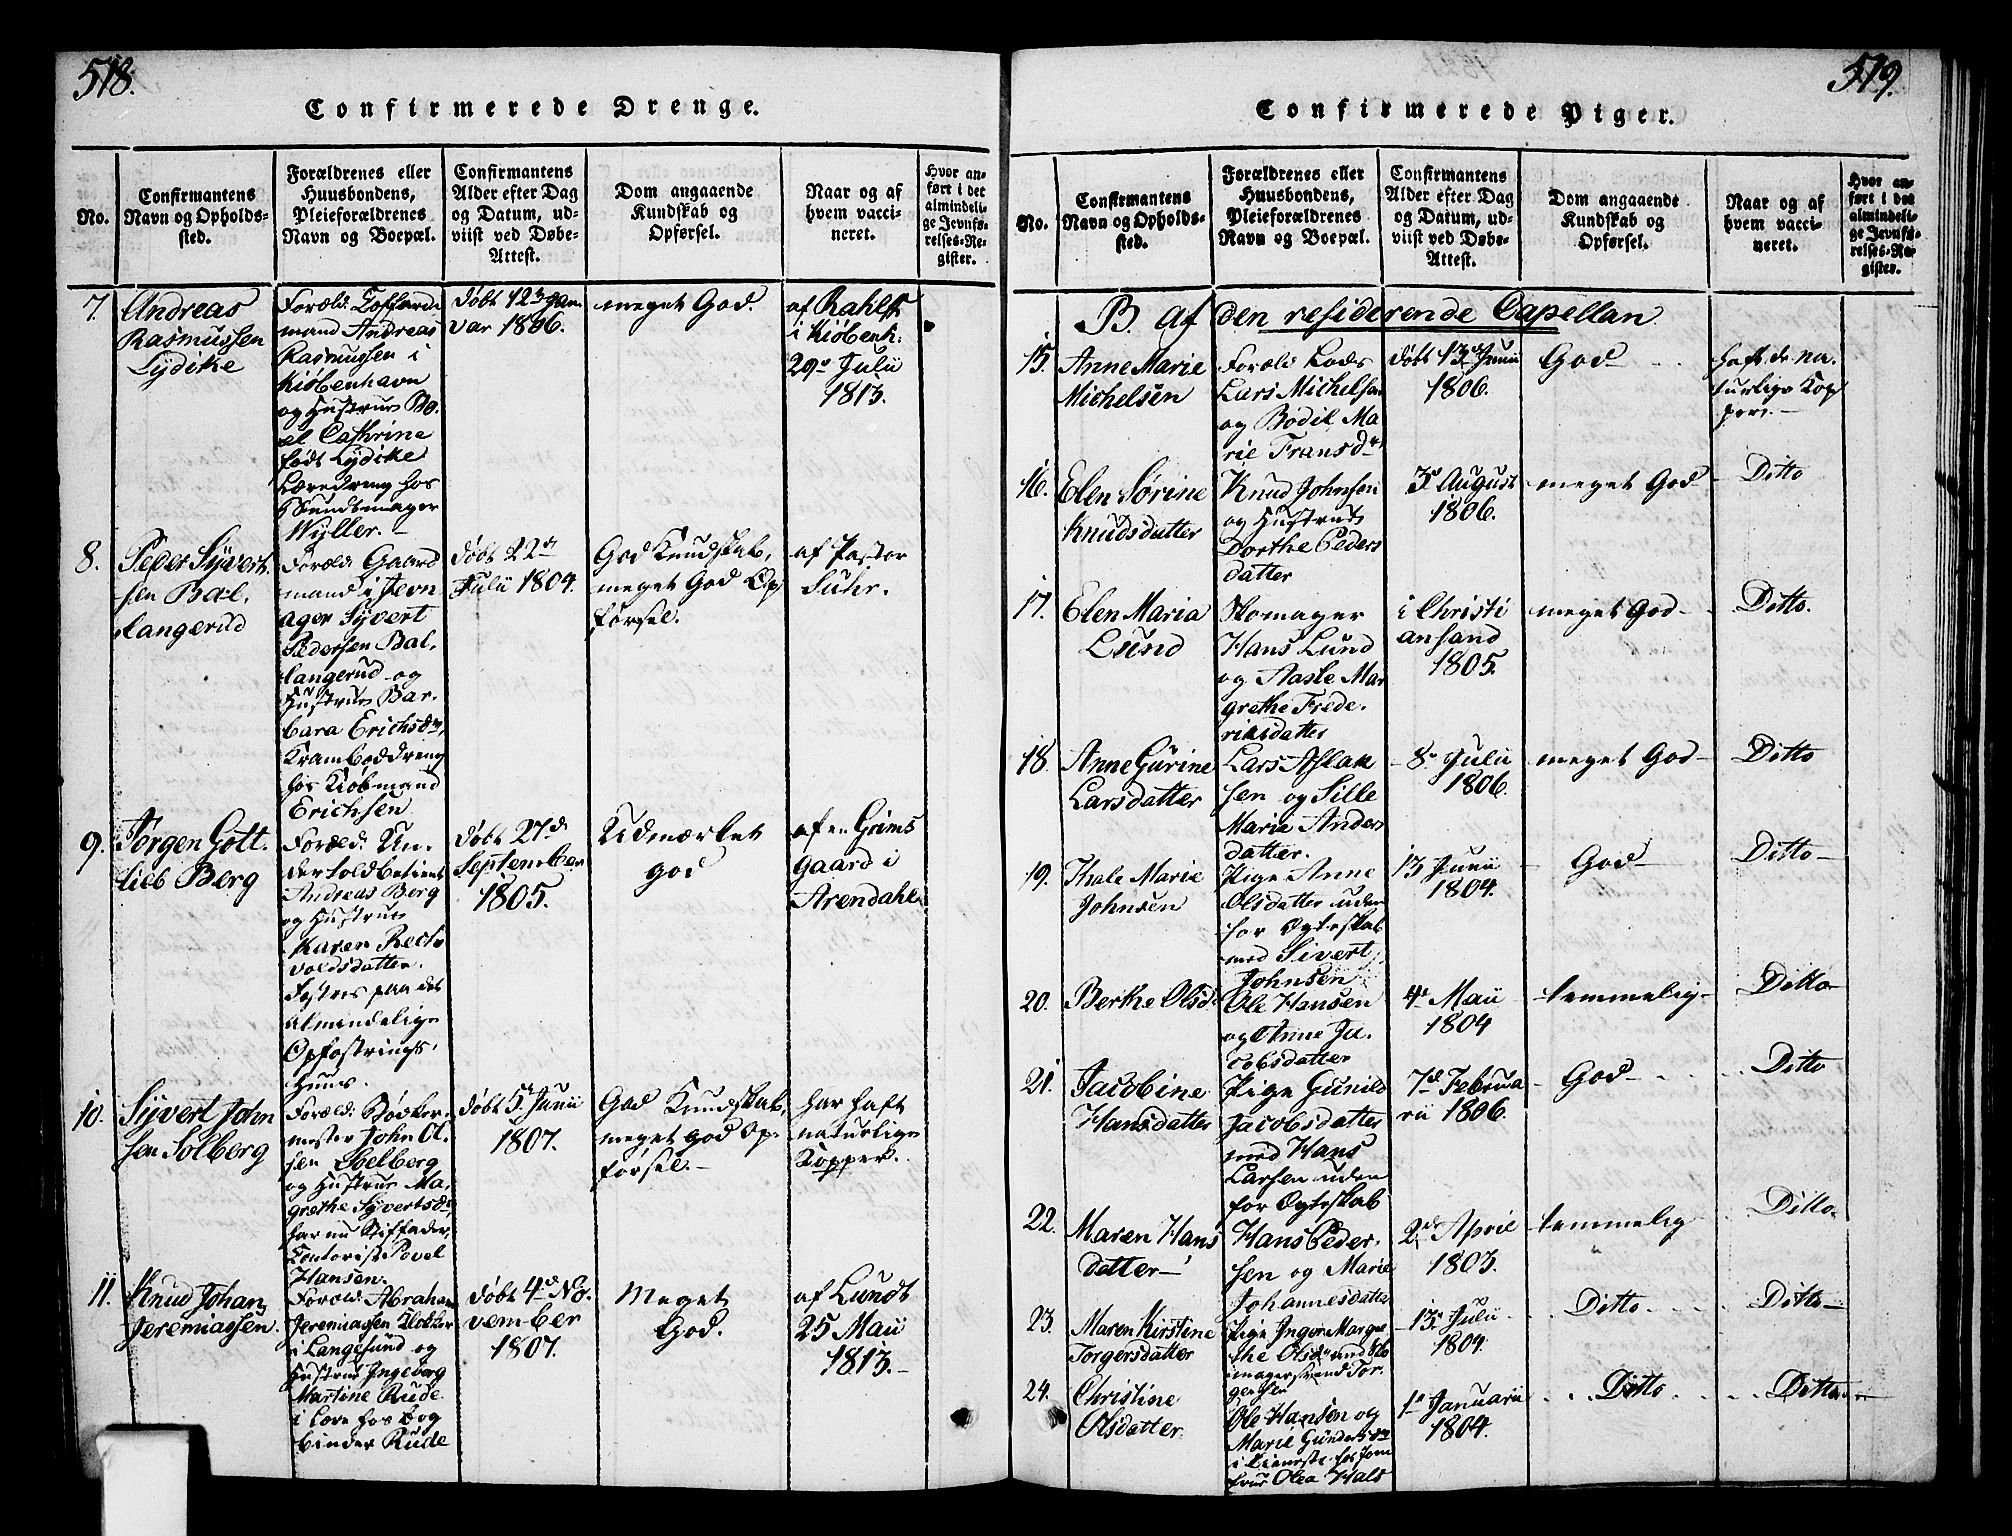 518.
Confirmerede Drenge.
No.
Confirmantens
Navn og Opholds-
sted.
Forældrenes eller
Huusbondens,
Pleieforældrenes
Navn og Boepæl.
Confirmantens
Alder efter Dag
og Datum, ud-
viist ved Døbe-
Attest.
Dom angaaende
Kundskab og
Opførsel.
Naar og af
hvem vacci-
neret.
Hvor an-
ført i det
almindeli-
ge Jevnfø-
relses-Re-
gister.
7.
Andreas
Rasmussen
Lydike
Foræld:
mand Andreas
Rasmussen i
Kiøbenhavn
og Hustrue Bo-
el Cathrine
født Lydike
Læredreng hos
Wyller. -
døbt 12te Janu
var 1806.
meget God.
af Rahlf
i Kiøbenh.
29de Julii
1813.
8.
Peder Syvert
sen Bal-
langerud
Foræld: Gaard
mand i Jevn
ager Syvert
Pedersen Bal-
langerud og
Hustrue Bar-
bara Erichsdr,
Kramboddreng
hos Kiøbmand
Erichsen
døbt 22de
Julii 1804.
God Kundskab,
meget God Op
førsel.
af Pastor
Suhr.
9.
Jørgen Gott-
lieb Berg
Foræld: Un-
dertoldbetient
Andreas Berg
og Hustrue
Karen Rects
voldsdatter.
Fostres paa det
almindelige
Opfostrings-
Huus.
døbt 27d
September
1805.
Udmærket
god
af en Grims
gaard i
Arendahl
10.
Syvert John
sen Solberg
Foræld: Bødker-
mester John Ol-
sen Soelberg
og Hustrue Ma-
grethe Syvertsdr,
har nu Stiffader,
Contorist Povel
Hansen.
døbt 5te Junii
1807.
God Kundskab,
meget god Op-
førsel. -
har haft
naturlige
Kopper.
11.
Knud Johan
Jeremiassen.
Foræld: Abraham
Jeremiassen Klokker
i Langesund og
Hustrue Ingeborg
Martine Rude
i Lære hos Bog
binder Rude
døbt 4de No-
vember
1807.
Meget
God.
af Lundt
25 Maii
1813. -
519.
Confirmerede Piger.
No.
Confirmantens
Navn og Opholds-
sted.
Forældrenes eller
Huusbondens,
Pleieforældrenes
Navn og Boepæl.
Confirmantens
Alder efter Dag
og Datum, ud-
viist ved Døbe-
Attest.
Dom angaaende
Kundskab og
Opførsel.
Naar og af
hvem vacci-
neret.
Hvor an-
ført i det
almindeli-
ge Jevnfø-
relses-Re-
gister.
B. af den residerende Capellan
15.
Anne Marie
Michelsen
Foræld Lods
Lars Michelsen
og Bodil Ma
rie Fransdr
døbt 13d Junii
1806.
God
haft de na-
turlige Kop
per. -
16.
Elen Sørine
Knudsdatter
Knud Johnsen
og Hustrue
Dorthe Peders
datter
3d August
1806.
meget God
Ditto
17.
Elen Maria
Lund
Skomager
Hans Lund
og Aasle Mar
grethe Frede-
riksdatter
i Christi
ansand
1805.
meget God
Ditto.
18.
Anne Gurine
Larsdatter
Lars Aslak
sen og Sille
Marie Anders
datter.
8de Julii
1806.
meget God
Ditto
19.
Thale Marie
Johnsen
Pige Anne
Olsdatter uden
for Ægteskab
med Sivert
Johnsen
13 Junii
1804.
God
Ditto
20.
Berthe Olsd.
Ole Hansen
og Anne Ja-
cobsdatter
4d Maii
1804
temmelig
Ditto
21.
Jacobine
Hansdatter
Pige Gunild
Jacobsdatter
med Hans
Larsen uden
for Ægteskab
7de Februa
rii 1806.
God
Ditto
22.
Maren Hans
datter
Hans Peder-
sen og Marie
Johannesdatter
2de April
1803.
temmelig
Ditto
23.
Maren Kirstine
Torgersdatter
Pige Inger Margre
the Olsdr med Sko
mager svend Tor-
gersen
13de Julii
1804.
Ditto
Ditto
24.
Christine
Olsdatter
Ole Hansen og
Marie Gundersdr
i Tieneste hos Jom
frue Olea Hals
1de Januarii
1804.
Ditto
Ditto